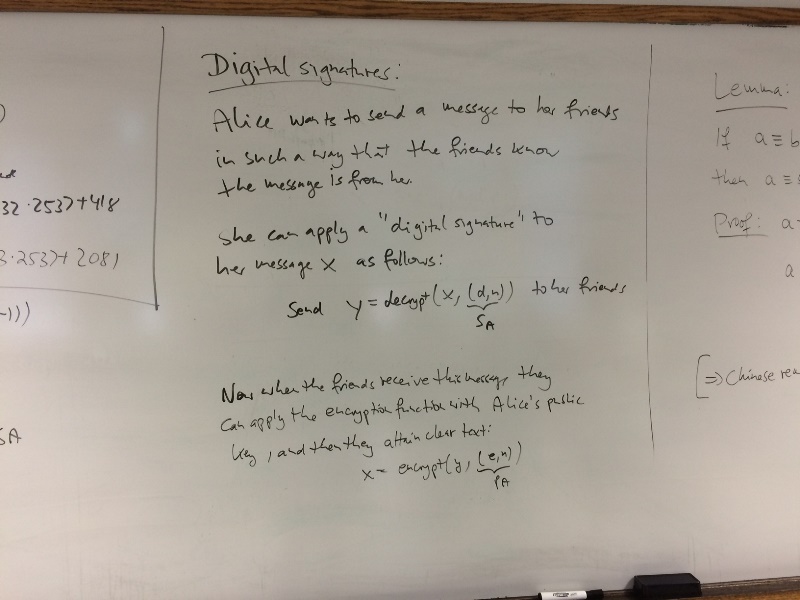 )
32·2537+418
3·2537+2081
-1)))
SA
Digital signatures:
Alice wants to send a message to her friends
in such a way that the friends know
the message is from her.
She can apply a "digital signature" to
her message X as follows:
Send y = decrypt(x, (d,n)) to her friends
SA
Now when the friends receive this message, they
can apply the encryption function with Alice's public
key, and then they attain clear text:
x = encrypt(y, (e,n))
PA
Lemma:
If a ≡ b
then a ≡
Proof: a
a
[⇒ Chinese